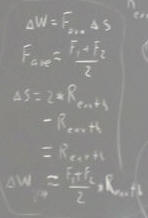 ΔW = F_ave Δs
F_ave = (F₁+F₂)/2
ΔS = 2 * R_earth
- R_earth
= R_earth
ΔW = (F₁+F₂)/2 * R_earth